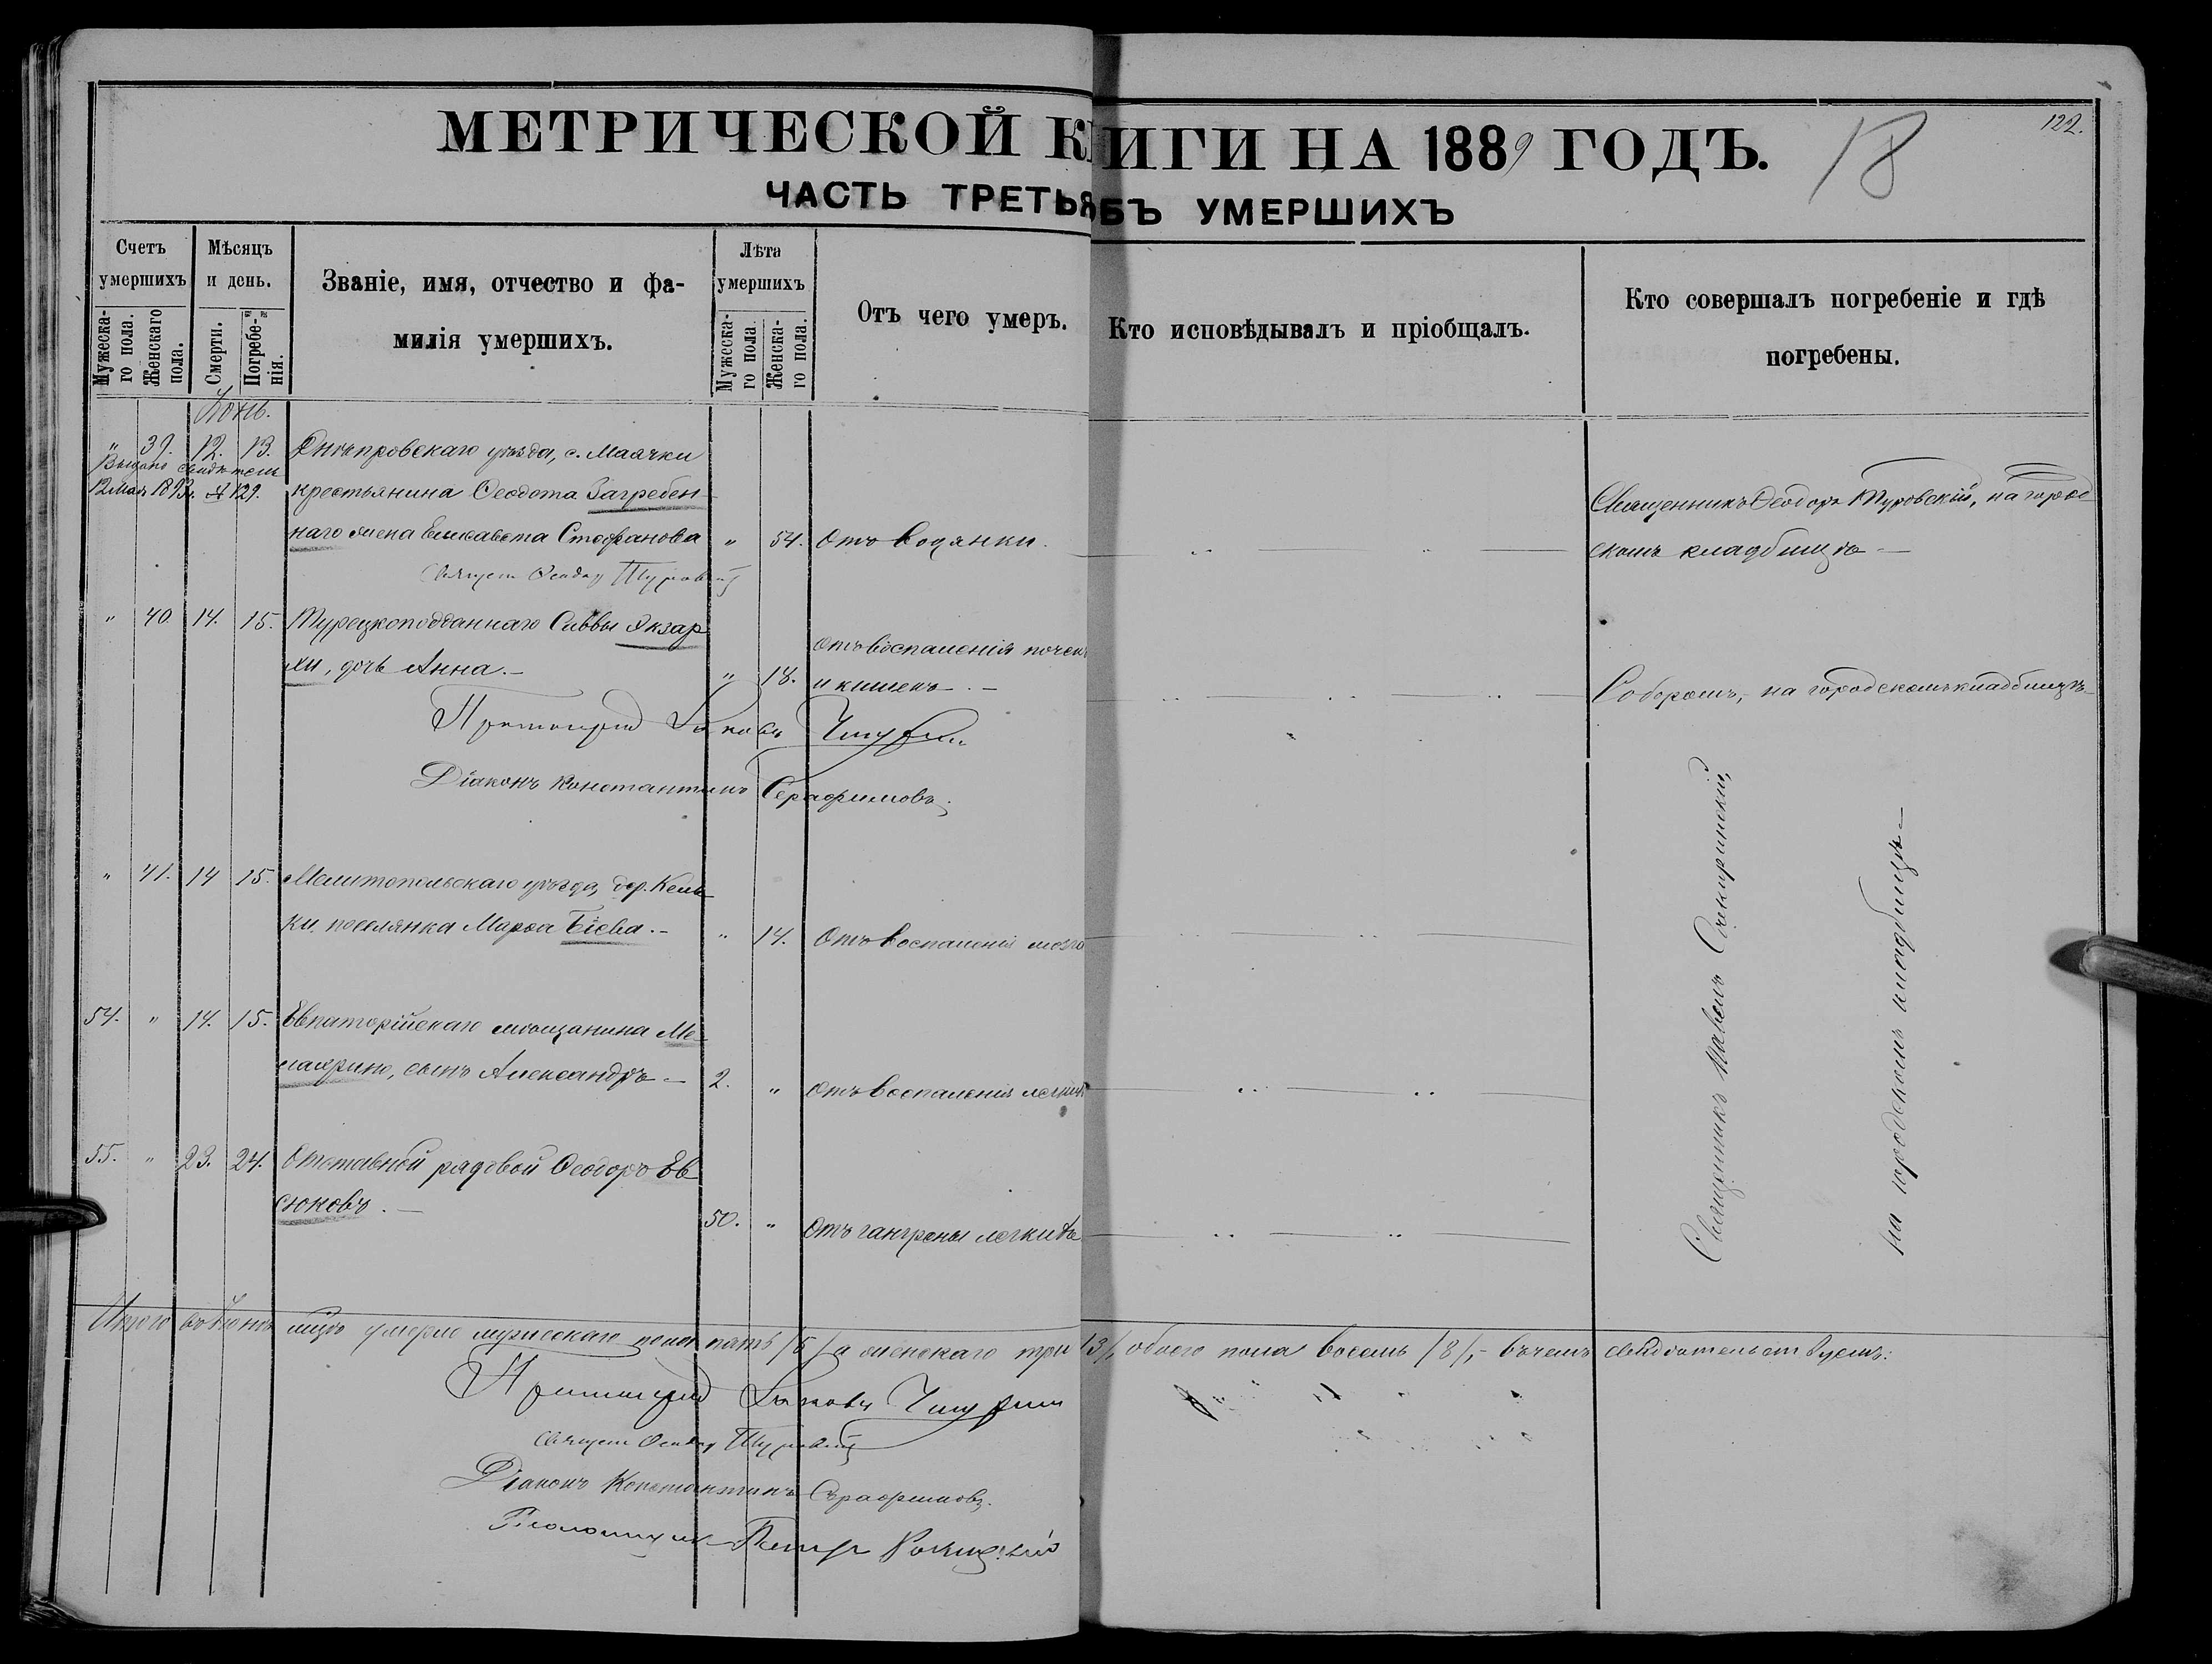 МЕТРИЧЕСКОЙ КНИГИ НА 1889 ГОДЪ.
18
122.
ЧАСТЬ ТРЕТЬЯ
БЪ УМЕРШИХЪ
Счетъ умершихъ
Мужескаго пола.
Женскаго пола.
Мѣсяцъ и день.
Смерти.
Погребенія.
Званіе, имя, отчество и фа-
милія умершихъ.
Лѣта умершихъ
Мужескаго пола.
Женскаго пола.
Отъ чего умеръ.
Кто исповѣдывалъ и пріобщалъ.
Кто совершалъ погребеніе и гдѣ
погребены.
Іюнь.
" 39. 12. 13. Днѣпровскаго уѣзда, с. Маячки
Выдано свидѣтель
12 Мая 1893 г. № 129. крестьянина Ѳеодота Загребен-
наго жена Елисавета Стефанова " 54. Отъ водянки.
Священникъ Ѳеодоръ Туровскій, на город-
скомъ кладбищѣ
Священ Ѳеодор Туровскій
" 40 14. 15. Турецкоподданнаго Саввы Экзар
хи, дочь Анна. " 18. Отъ воспаленія почекъ
и кишекъ.
Соборомъ, на городскомъ кладбищѣ
Протоіерей Іаковъ Чепурин
Діаконъ Константинъ Серафимовъ.
" 41. 14 15. Мелитопольскаго уѣзда, дер. Кель-
ки поселянка Марѳа Бісва. " 14. Отъ воспаленія мозга
54. " 14. 15. Евпаторійскаго мѣщанина Ме-
лаірино, сынъ Александръ 2. " Отъ воспаленія легкихъ
55. " 23. 24. Отставной рядовой Ѳеодоръ Ев
сюковъ. 50. " Отъ гангрены легкихъ
Священникъ Павелъ Сикиринскій,
на городскомъ кладбищѣ
Итого въ Іюнѣ мцѣ умерло мужескаго пола пять /5/ а женскаго три /3/, обоего пола восемь /8/, въ чемъ свидѣтельствуемъ:
Протоіерей Іаковъ Чепурин
Священ Ѳеодор Туровскій
Діаконъ Константинъ Серафимовъ.
Псаломщикъ Петръ